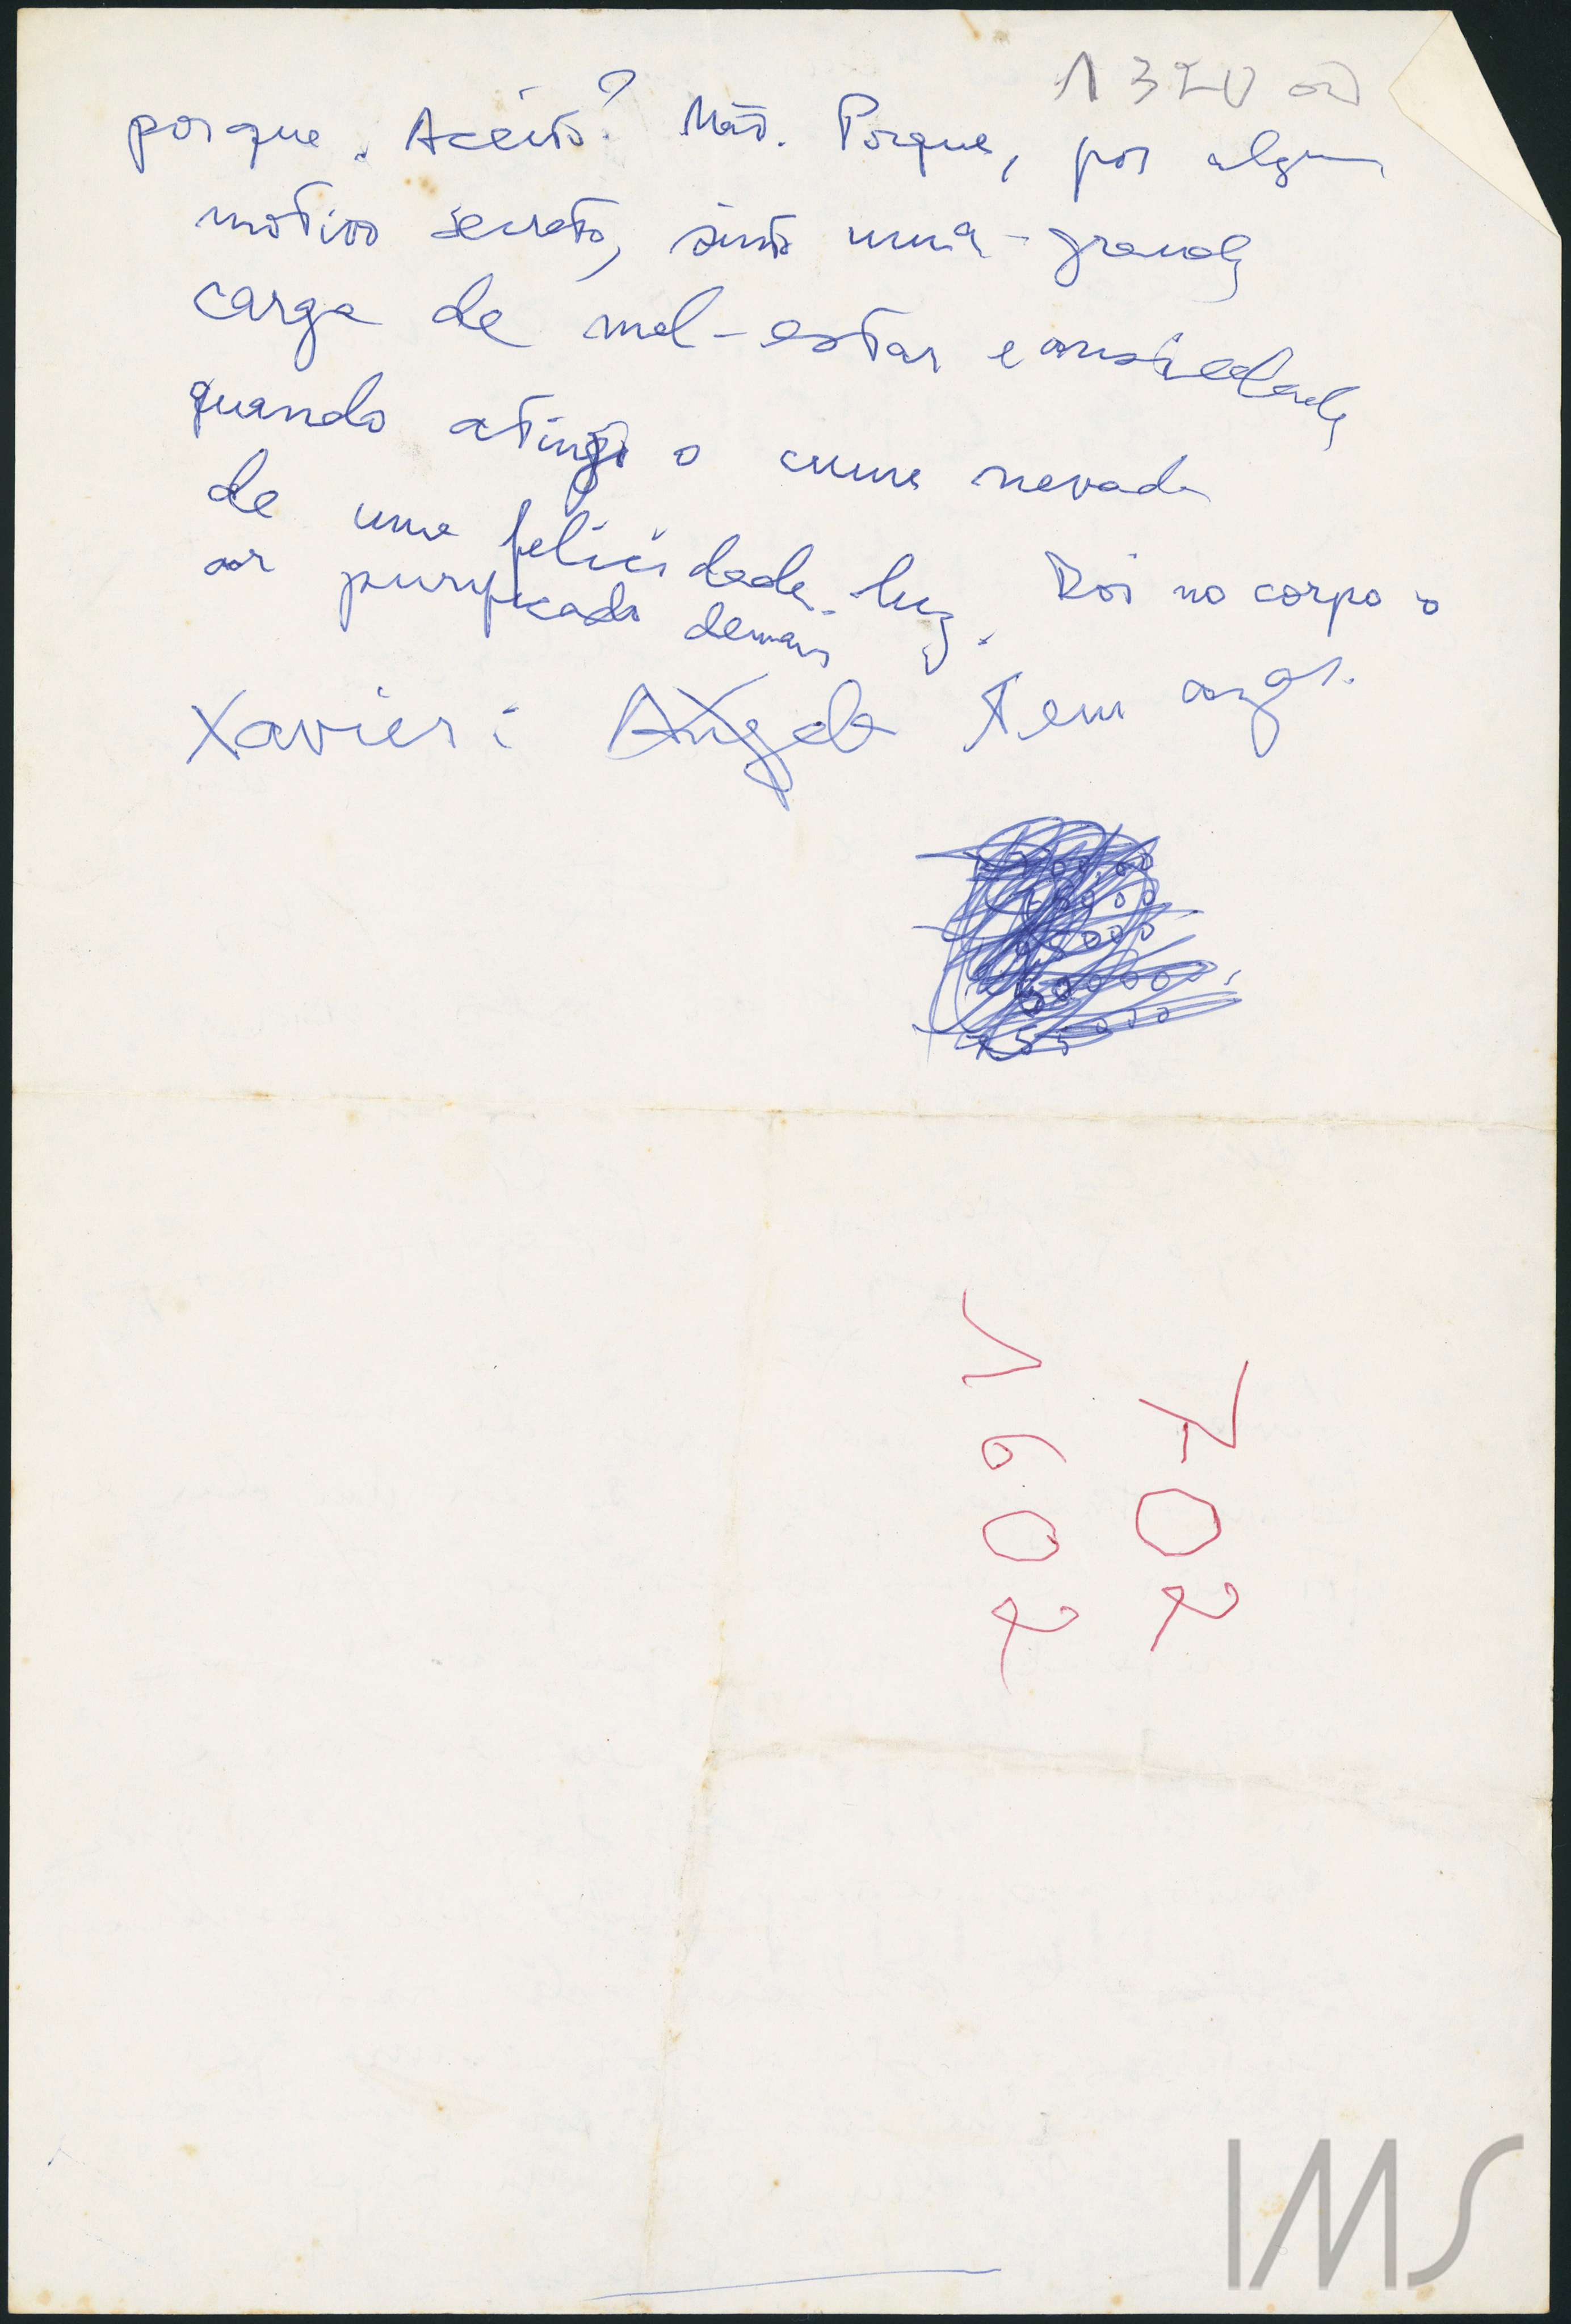 porque. Aceito? Não. Porque, por algum
motivo secreto, sinto uma grande
carga de mal-estar e ansiedade
quando atinjo o cume nevado
de uma felicidade-luz. Dói no corpo o
ar purificado demais
Xavier: Angela tem asas.
702
1602
IMS